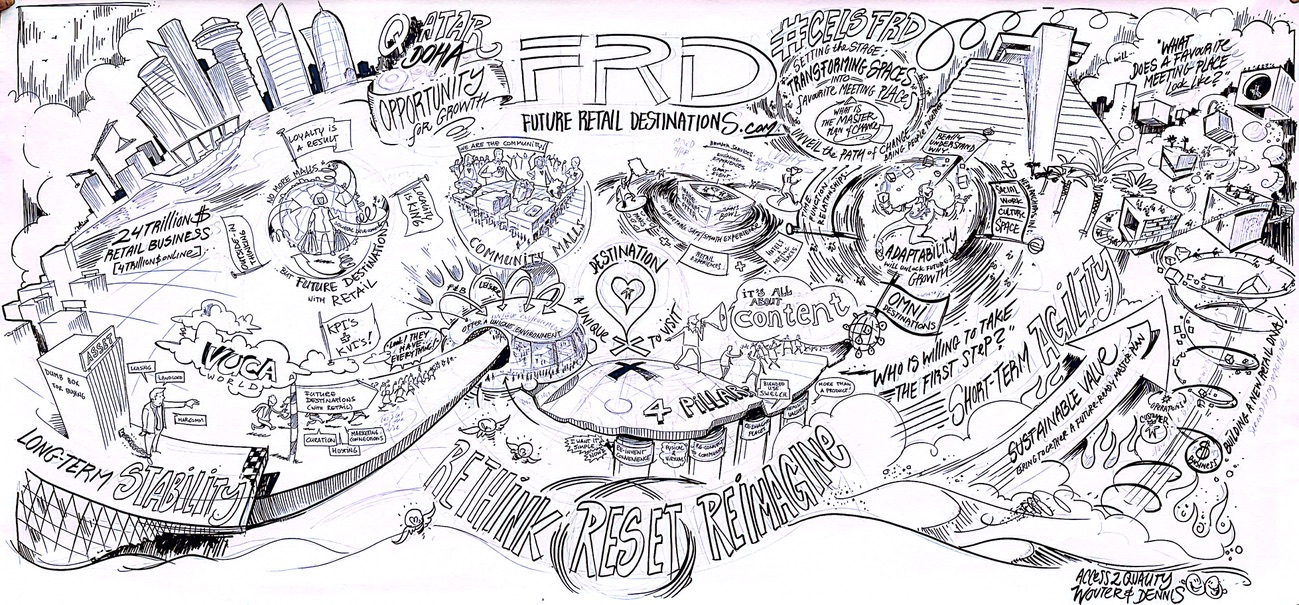 QATAR
DOHA
OPPORTUNITY
for GROWTH
FRD
FUTURE RETAIL DESTINATIONS.com
#CELSFRD
SETTING the STAGE:
TRANSFORMING SPACES
INTO
FAVOURITE MEETING PLACES
WHAT IS
THE MASTER
PLAN 4 CHANGE
UNVEIL the PATH of CHANGE
"WHAT
DOES A FAVOURITE
MEETING PLACE
LOOK LIKE?"
LOYALTY IS
A RESULT
NO MORE MALLS
BUT FUTURE DESTINATIONS
WITH RETAIL
LOYALTY
IS KING
OUTSIDE IN
THINKING
24 TRILLION $
RETAIL BUSINESS
[4 TRILLION $ ONLINE]
WE ARE THE COMMUNITY
COMMUNITY MALLS
RETAIL
EXPERIENCES
REALLY
UNDERSTAND
WHY
SOCIAL
WORK
CULTURE
SPACE
ADAPTABILITY
WILL UNLOCK FUTURE
GROWTH
OMNI
DESTINATIONS
KPI'S
KVI'S!
VUCA
WORLD
ASSET
DUMB BOX
FOR BUYING
LEASING
LANDLORD
MARCOMM
FUTURE
DESTINATIONS
(WITH RETAIL)
CURATION
MARKETING
CONNECTIONS
HOSTING
LOOK! THEY
HAVE
EVERYTHING!
F&B
LEISURE
OFFER A UNIQUE ENVIRONMENT
A UNIQUE
DESTINATION
TO VISIT
IT'S ALL
ABOUT
content
4 PILLARS
BLENDED
USE
MORE THAN
A PRODUCT
I WANT IT
SIMPLE
RE-INVENT
CONVENIENCE
"WHO IS WILLING TO TAKE
THE FIRST STEP?"
SHORT-TERM AGILITY
SUSTAINABLE VALUE
BRING TOGETHER A FUTURE-READY MASTER PLAN
OPERATIONS
CUSTOMER
$
BUSINESS
BUILDING A NEW RETAIL DNA!
LONG-TERM STABILITY
RETHINK RESET REIMAGINE
ACCESS 2 QUALITY
WOUTER & DENNIS